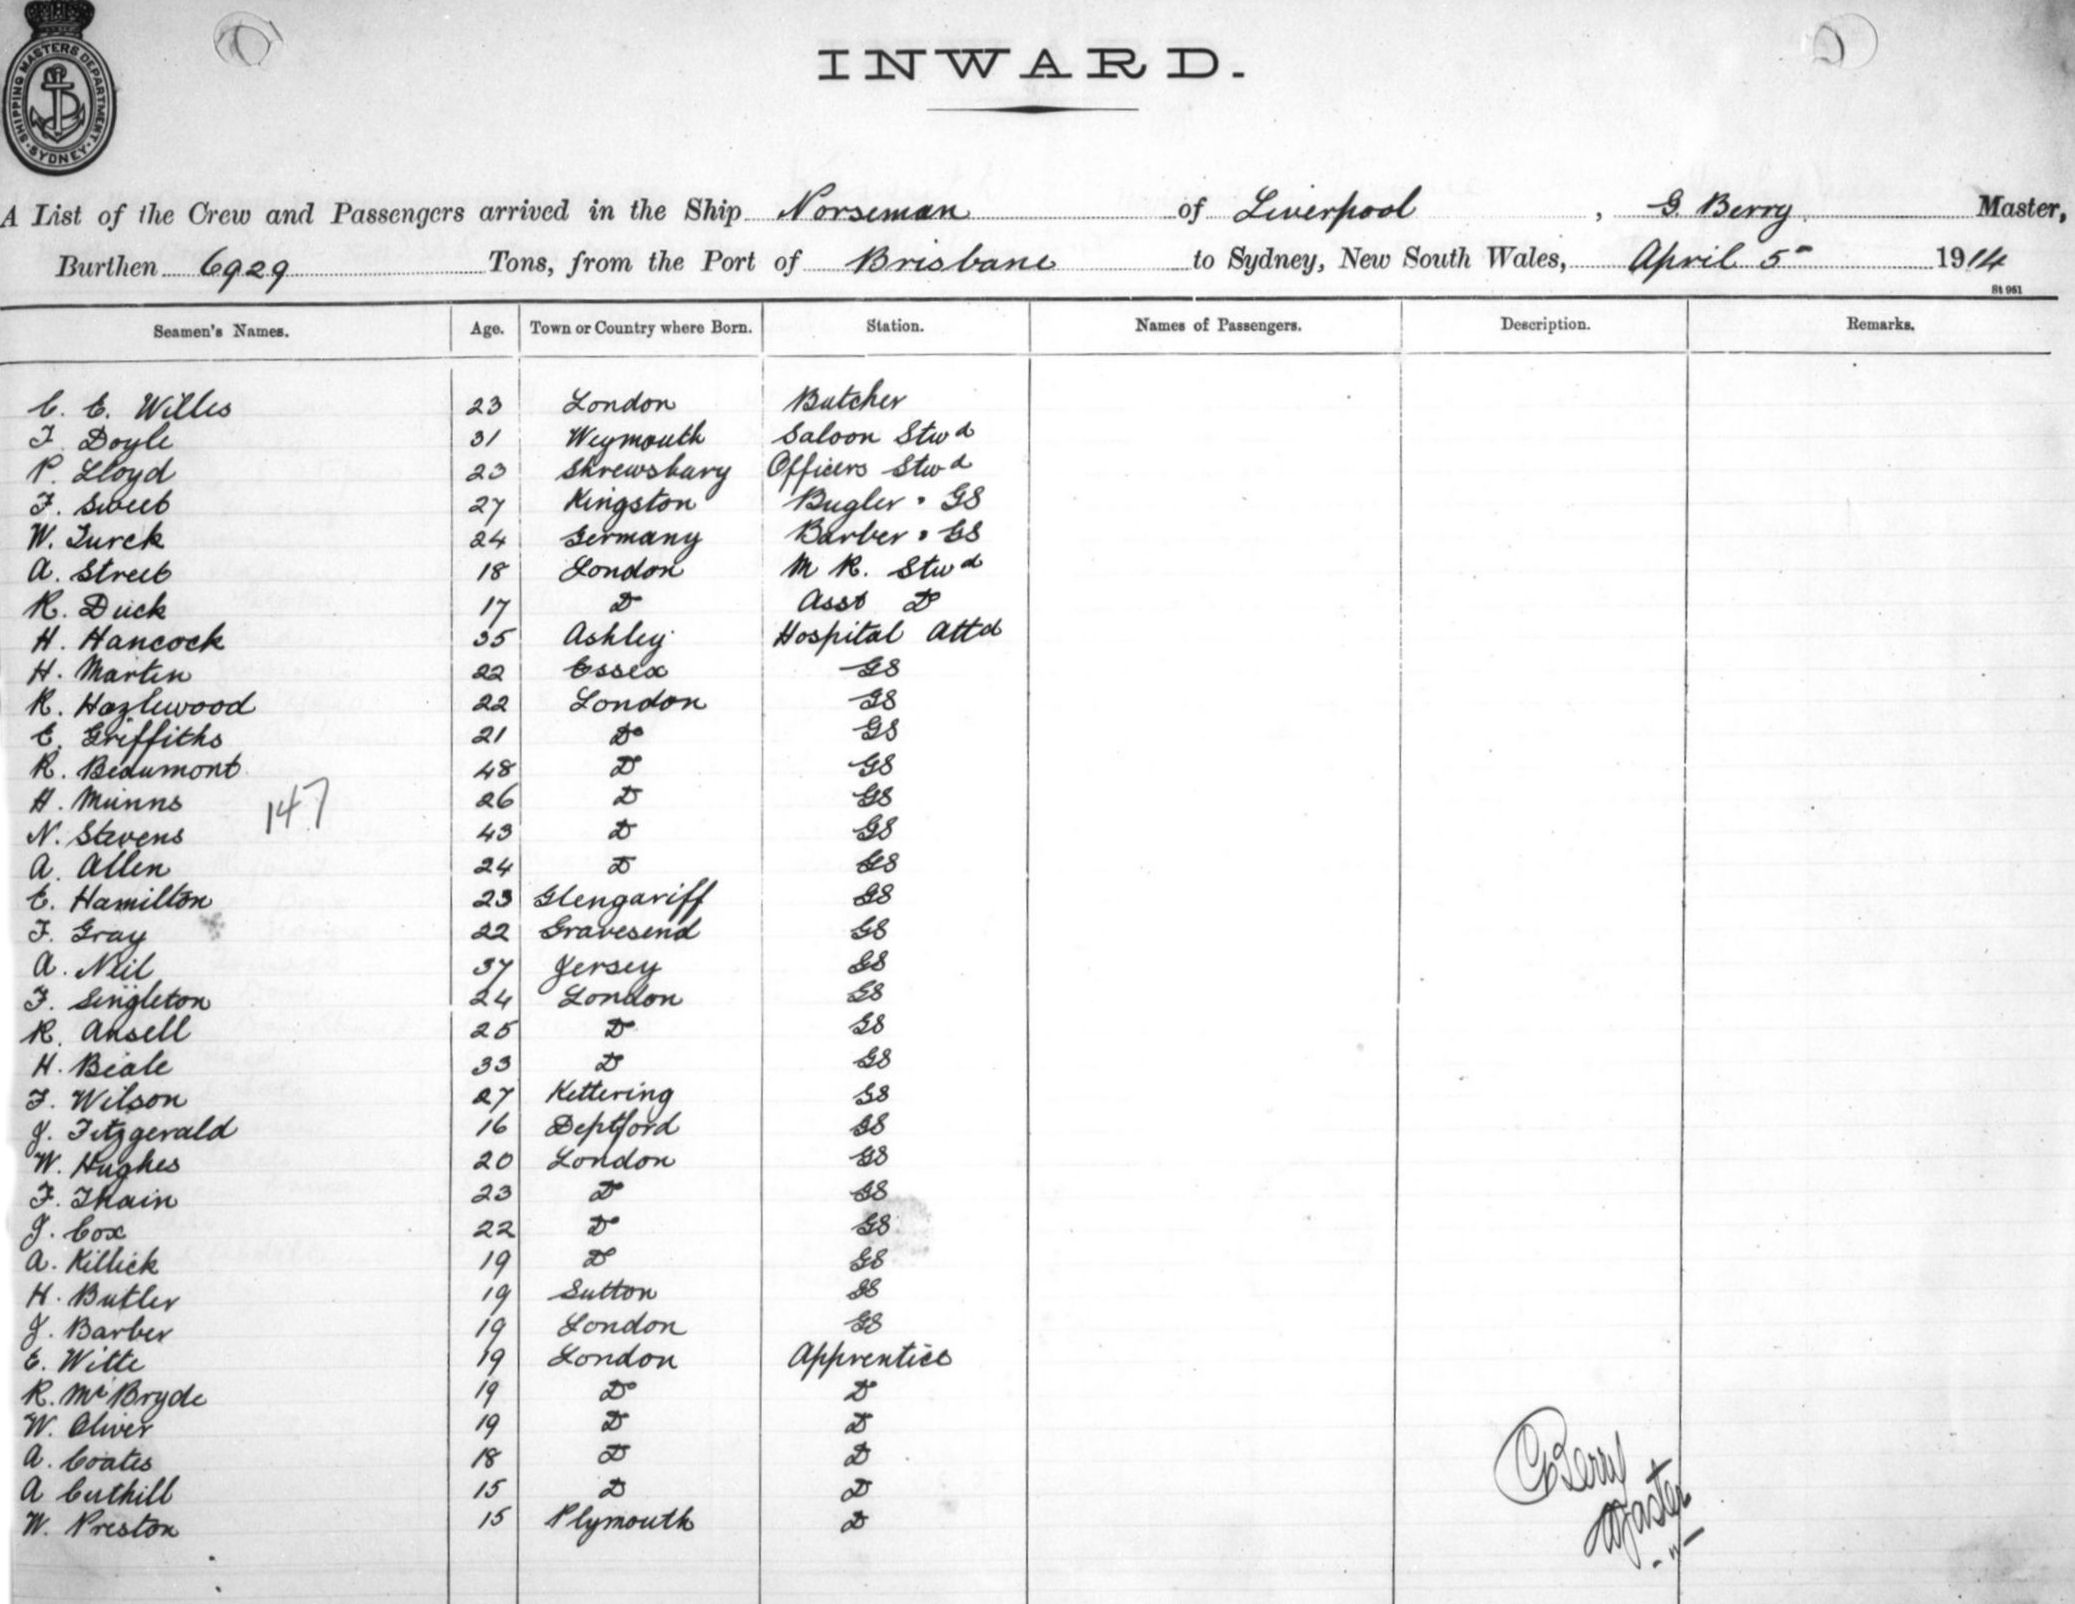 SHIPPING MASTERS DEPARTMENT. SYDNEY
INWARD.
A List of the Crew and Passengers arrived in the Ship Norseman of Liverpool, G. Berry Master,
Burthen 6929 Tons, from the Port of Brisbane to Sydney, New South Wales, April 5 1914
St 961
Seamen's Names. Age. Town or Country where Born. Station. Names of Passengers. Description. Remarks.
C. E. Willis 23 London Butcher
F. Doyle 31 Weymouth Saloon Stwd
P. Lloyd 23 Shrewsbury Officers Stwd
F. Sweet 27 Kingston Bugler • GS
W. Turck 24 Germany Barber • GS
A. Street 18 London M R. Stwd
R. Duck 17 Do Asst Do
H. Hancock 35 Ashley Hospital Attd
H. Martin 22 Essex GS
R. Hazlewood 22 London GS
E. Griffiths 21 Do GS
R. Beaumont 48 Do GS
H. Munns 26 Do GS
147
N. Stevens 43 Do GS
A. Allen 24 Do GS
E. Hamilton 23 Glengariff GS
F. Gray 22 Gravesend GS
A. Neil 37 Jersey GS
F. Singleton 24 London GS
R. Ansell 25 Do GS
H. Beale 33 Do GS
F. Wilson 27 Kettering GS
J. Fitzgerald 16 Deptford GS
W. Hughes 20 London GS
F. Thain 23 Do GS
J. Cox 22 Do GS
A. Killick 19 Do GS
H. Butler 19 Sutton GS
J. Barber 19 London GS
E. Witte 19 London Apprentice
R. McBryde 19 Do Do
W. Oliver 19 Do Do
A. Coates 18 Do Do
A Cuthill 15 Do Do
W. Preston 15 Plymouth Do
G Berry
Master